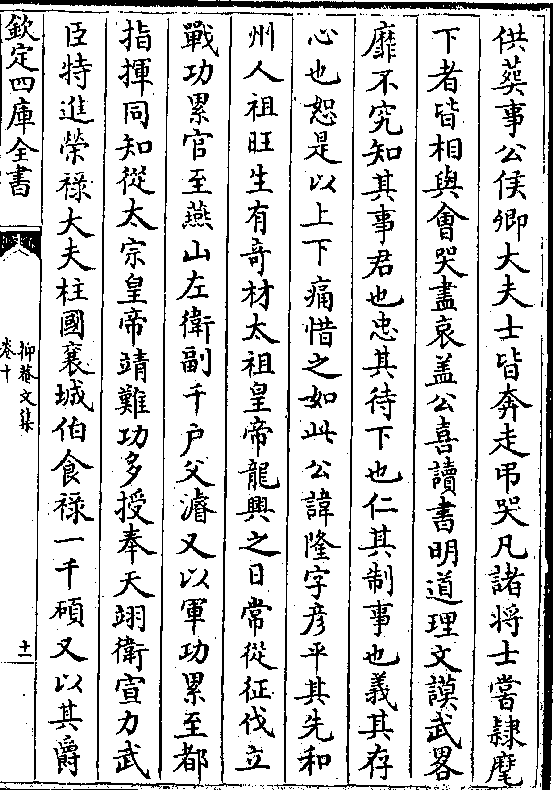 供葬事公侯卿大夫士皆奔走弔哭凡諸將士嘗隷麾
下者皆相與會哭盡哀盖公喜讀書明道理文謨武畧
靡不究知其事君也忠其待下也仁其制事也義其存
心也恕是以上下痛惜之如此公諱隆字彦平其先和
州人祖旺生有奇材太祖皇帝龍興之日常從征伐立
戰功累官至燕山左衛副千户父濬又以軍功累至都
指揮同知從太宗皇帝靖難功多授奉天翊衛宣力武
臣特進榮祿大夫柱國襄城伯食祿一千碩又以其爵
欽定四庫全書
抑菴文集
卷十
十一